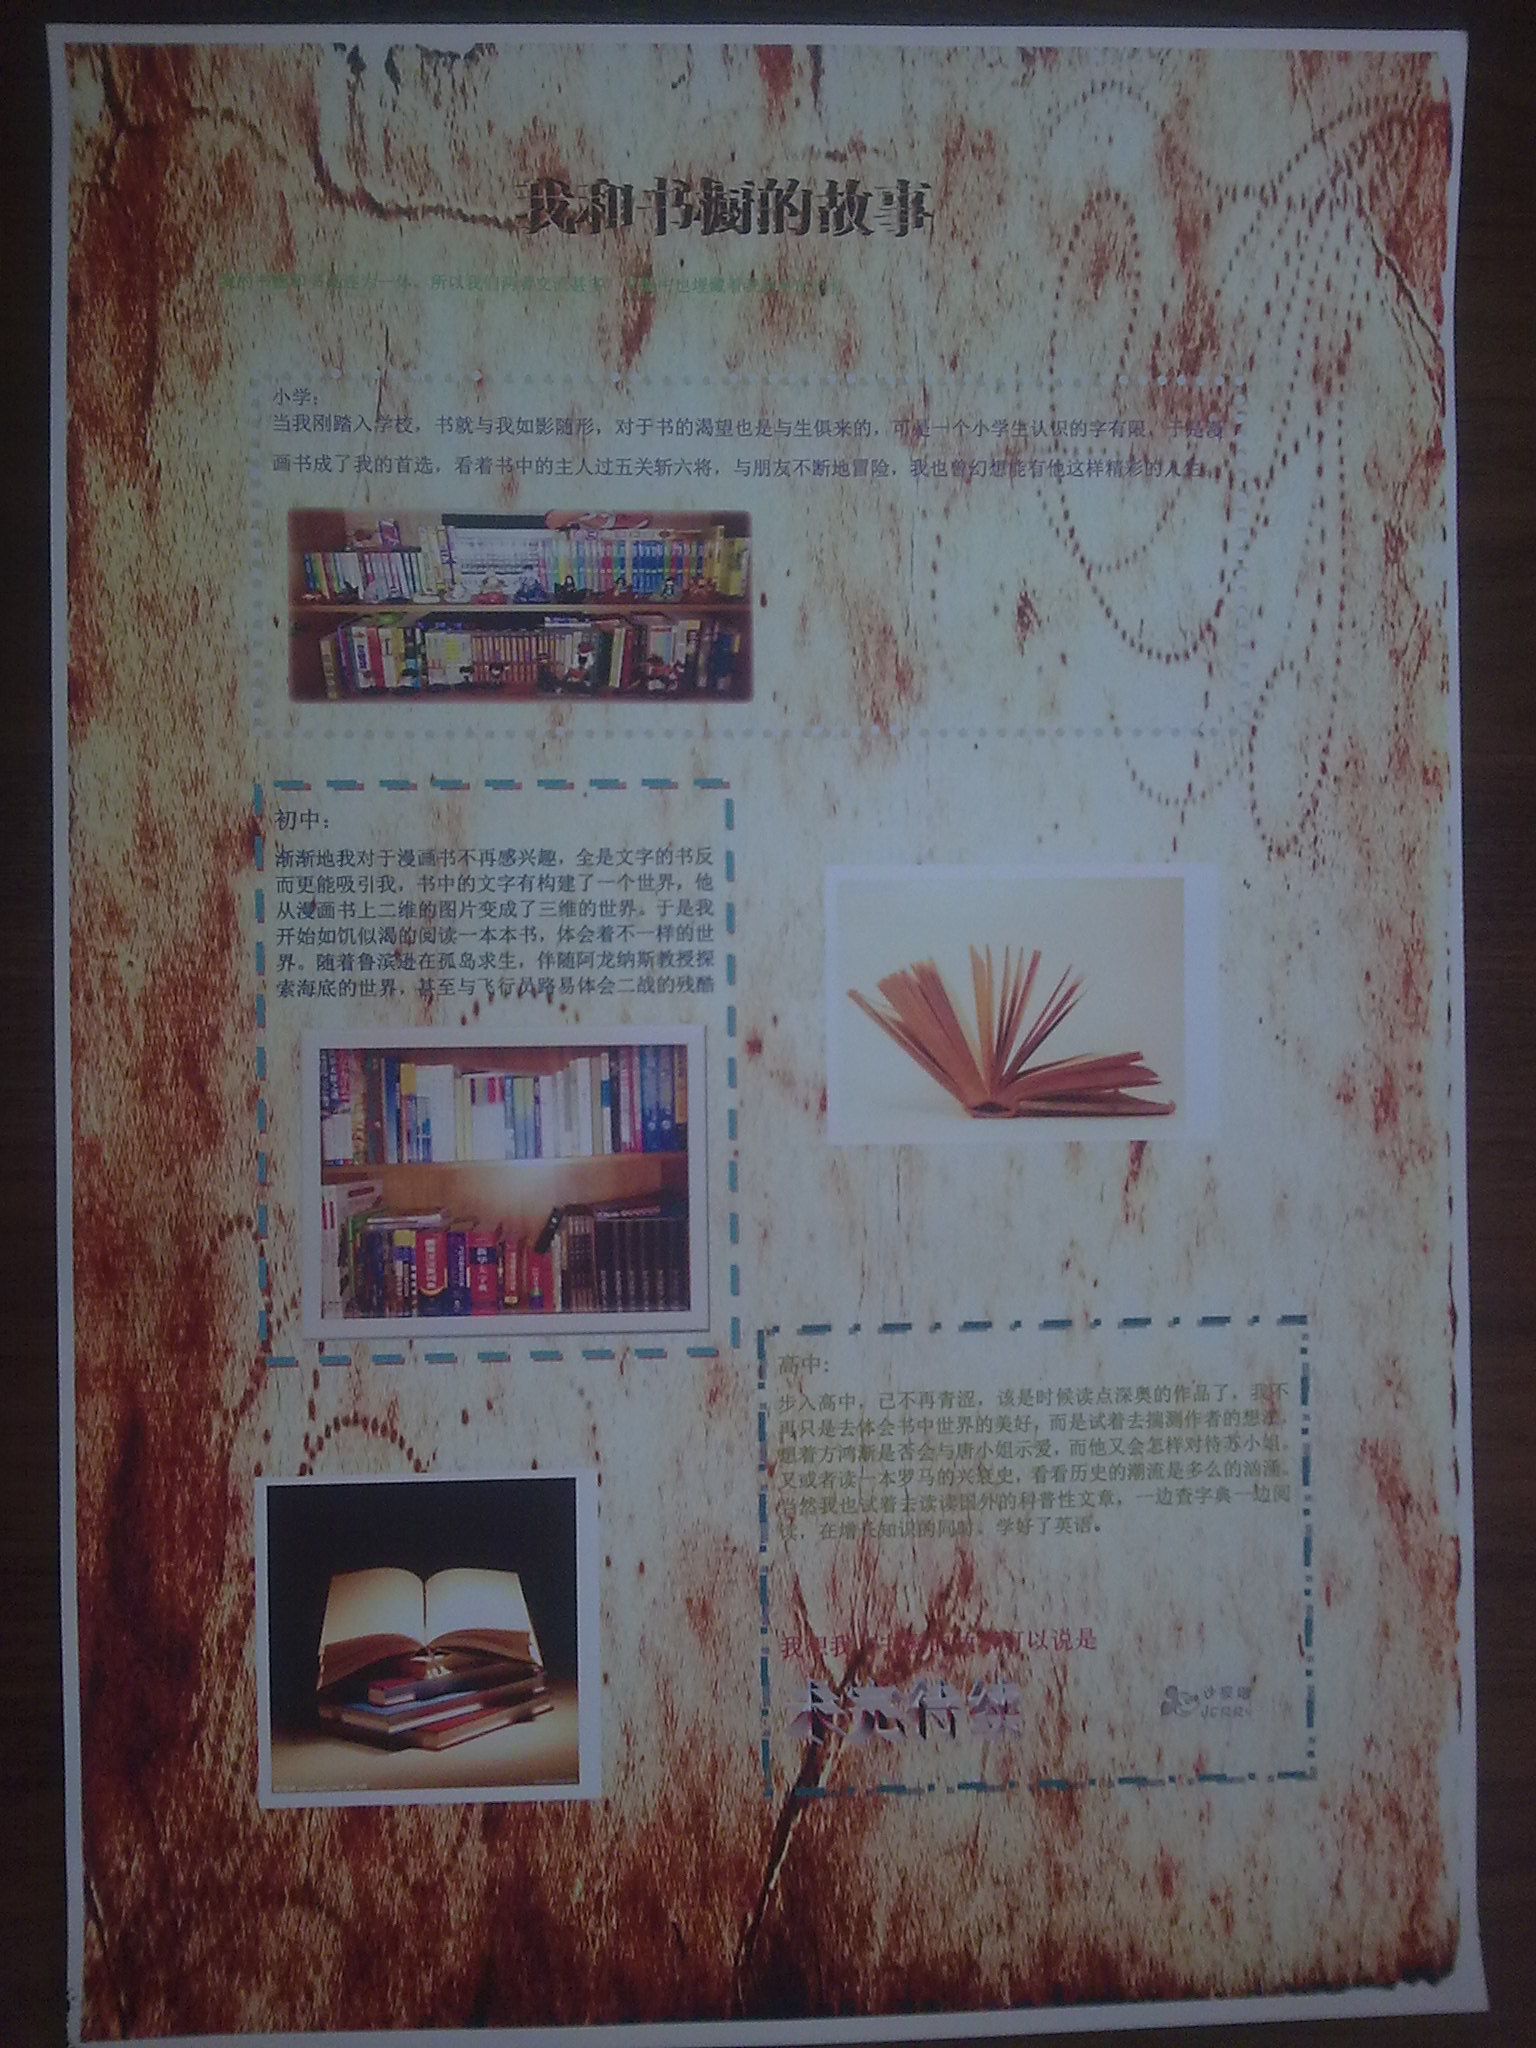 我和书橱的故事
所以我们两者交流甚多
小学：
当我刚踏入学校，书就与我如影随形，对于书的渴望也是与生俱来的，可是一个小学生认识的字有限，于是漫
画书成了我的首选，看着书中的主人过五关斩六将，与朋友不断地冒险，我也曾幻想能有他这样精彩的人生。
初中：
渐渐地我对于漫画书不再感兴趣，全是文字的书反
而更能吸引我，书中的文字有构建了一个世界，他
从漫画书上二维的图片变成了三维的世界。于是我
开始如饥似渴的阅读一本本书，体会着不一样的世
界。随着鲁滨逊在孤岛求生，伴随阿龙纳斯教授探
索海底的世界，甚至与飞行员路易体会二战的残酷
高中：
步入高中，已不再青涩，该是时候读点深奥的作品了，我不
再只是去体会书中世界的美好，而是试着去揣测作者的想法，
想着方鸿渐是否会与唐小姐示爱，而他又会怎样对待苏小姐。
又或者读一本罗马的兴衰史，看看历史的潮流是多么的汹涌。
当然我也试着去读读国外的科普性文章，一边查字典一边阅
读，在增长知识的同时，学好了英语。
可以说是
未完待续
JERRY